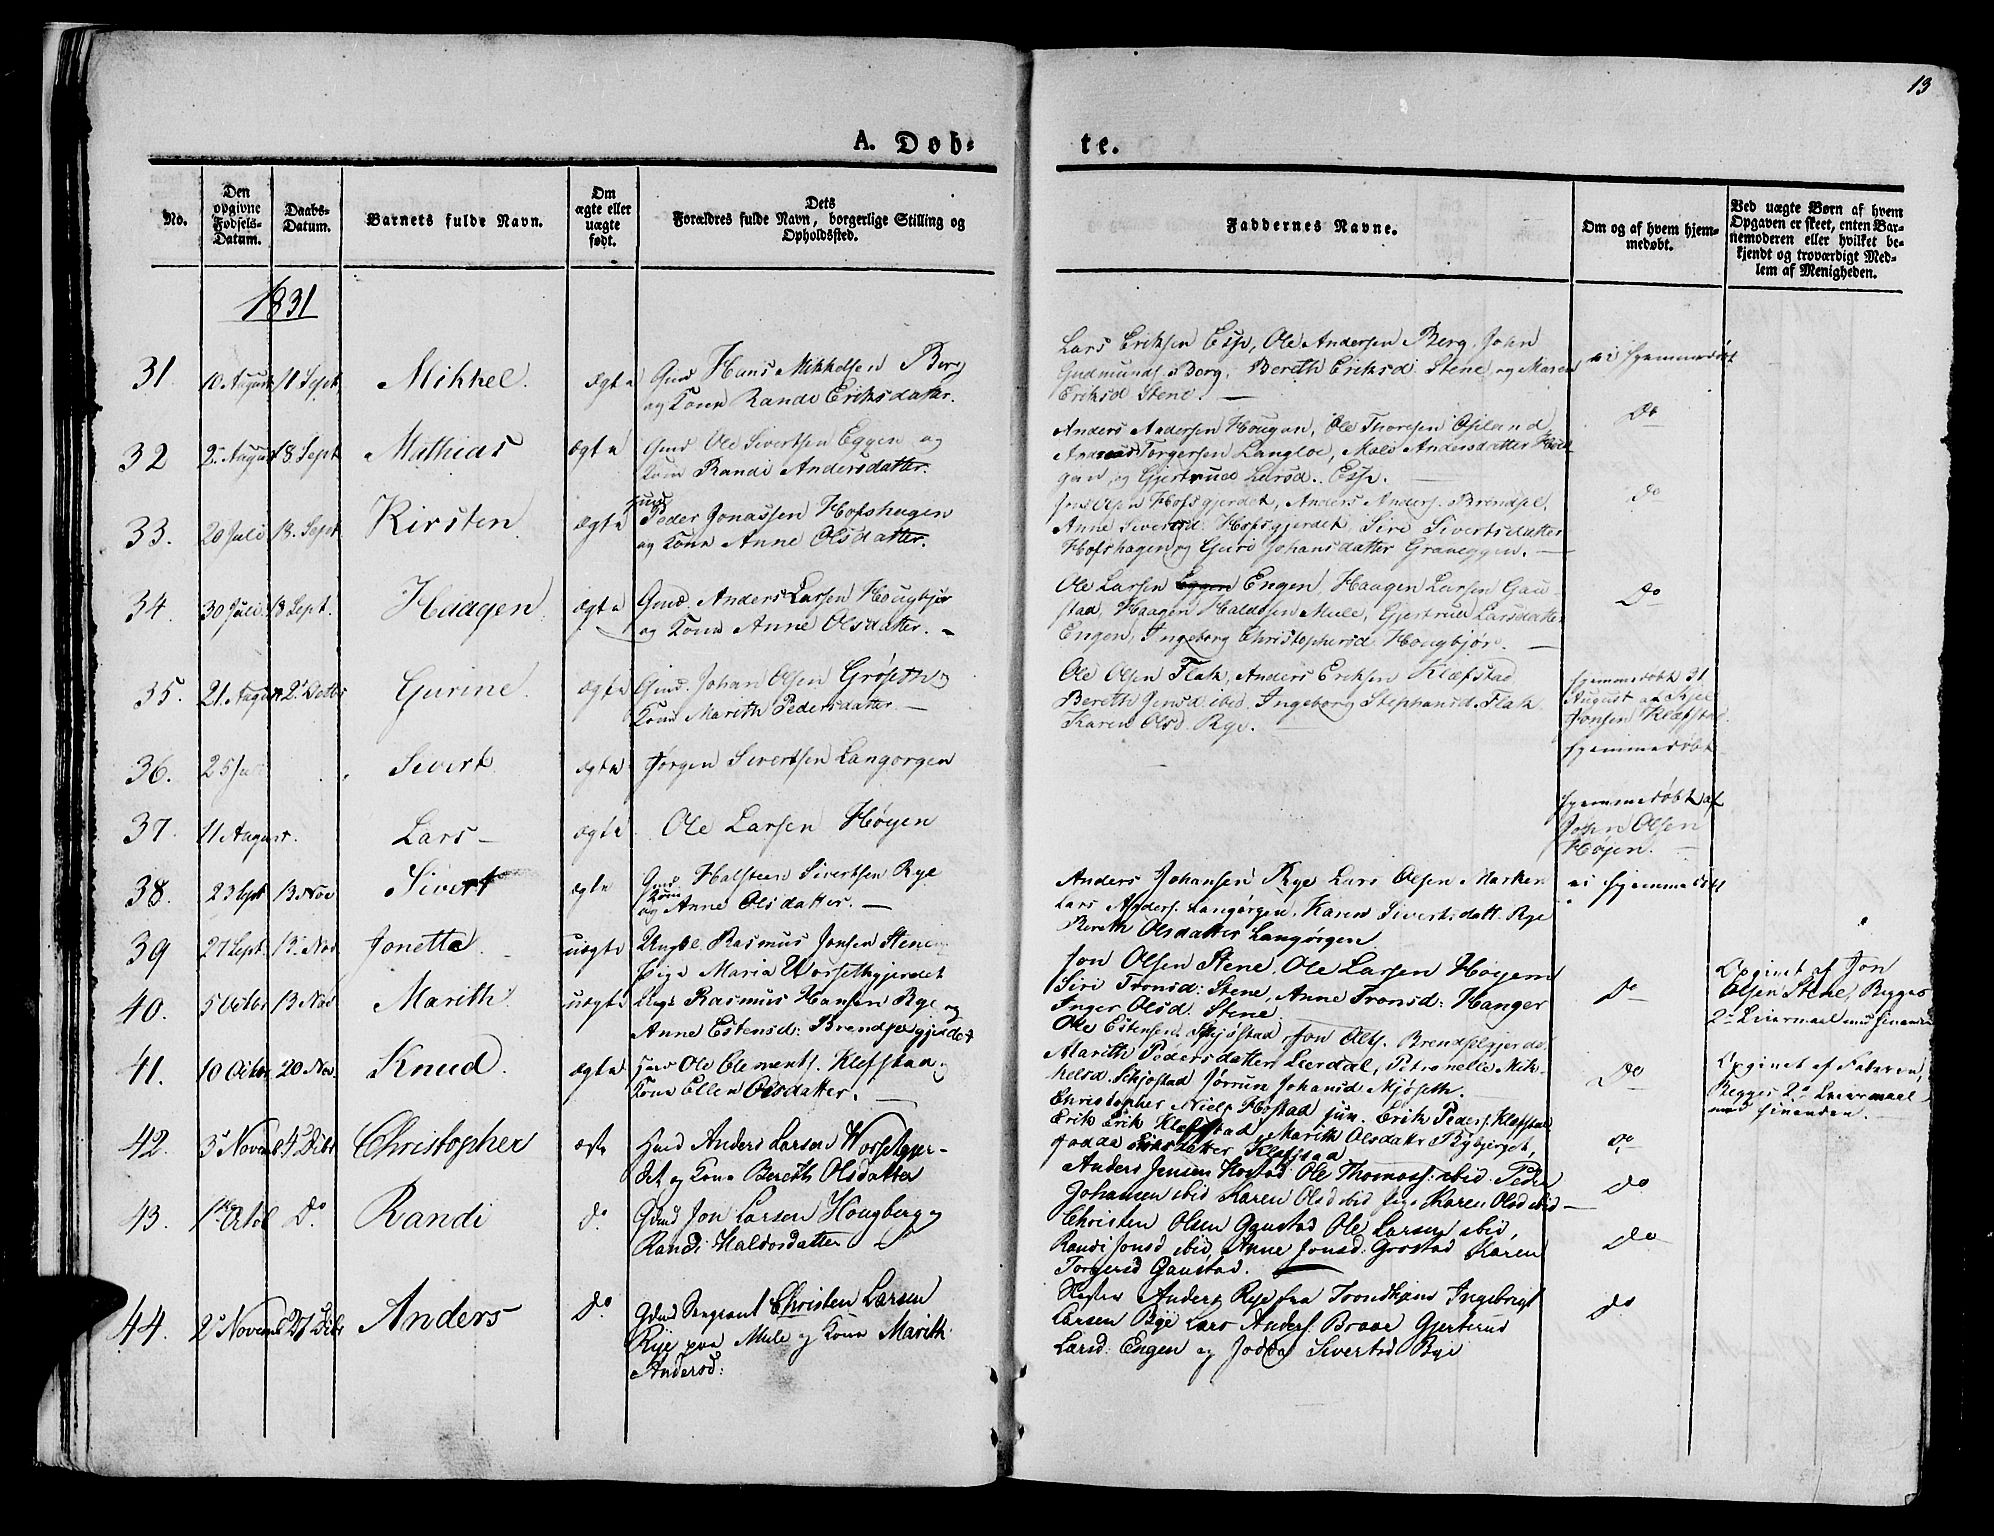 13
A. Døb-
te.
No.
Den
opgivne
Fødsels-
Datum.
Daabs-
Datum.
Barnets fulde Navn.
Om
ægte eller
uægte
født.
Dets
Forældres fulde Navn, borgerlige Stilling og
Opholdssted.
Faddernes Navne.
Om og af hvem hjem-
medøbt.
Ved uægte Børn af hvem
Opgaven er skeet, enten Bar-
nemoderen eller hvilket be-
kjendt og troværdigt Med-
lem af Menigheden.
1831
31. 10 August 11 Sept. Mikkel. ægte
Gmd Hans Mikkelsen Berg
og Kone Randi Eriksdatter.
Lars Eriksen Esp, Ole Andersen Berg, John
Gudmunds. Berg, Bereth Eriksd. Stene og Maren
Eriksd Stene. —
ei hjemmedøbt
32 2 August 18 Sept Mathias ægte
Gmd Ole Sivertsen Eggen og
Kone Randi Andersdatter.
Anders Andersen Hougan, Ole Thoresen
Torgersen Langloe, Mali Andersdatter Hou
gan og Gjertrud Larsd. Esp. —
Do
33. 20 Juli 18. Sept Kirsten ægte
Gmd
Peder Jonassen Hofshagen
og Kone Anne Olsdatter.
Olsen Hofsgjerdet, Anders Anders. Brendsel,
Anne Sivertsd. Hofsgjerdet, Siri Sivertsdatter
Hofshagen og Guri Johansdatter Graveggen. —
Do
34. 30 Juli 18 Sept. Haagen ægte
Gmd. Anders Larsen Hougbjør
og Kone Anne Olsdatter. -
Ole Larsen Engen, Haagen Larsen Gau-
stad, Haagen Haldosen Mule, Gjertrud Larsdatter
Engen, Ingeborg Christophersd Hougbjør. —
Do
35. 21. August 2 Octbr Gurine. ægte
Gmd. Johan Olsen Grøseth og
Kone Marith Pedersdatter. —
Ole Olsen Flak, Anders Eriksen Klæfstad
Bereth Jensd ibid, Ingeborg Stephansd. Flak
Karen Olsd Rye. —
Hjemmedøbt 31
August af
Jonsen Klæfstad
36. 25 Juli Sivert ægte
Jørgen Sivertsen Langørgen
Hjemmedøbt
37. 11 August. Lars — ægte
Ole Larsen Høyen
Hjemmedøbt af
John Olsen
Høyen. —
38. 23 Sept 13 Nov Sivert ægte
Gmd Halsteen Sivertsen Rye
Kone
og Anne Olsdatter. —
Anders Johansen Rye Lars Olsen Marken
Lars Anders. Langørgen, Karen Sivertsdatt. Rye
Bereth Olsdatter Langørgen
ei hjemmedøbt
39 27 Sept. 13. Nov Jonetta uægte
Ungkl Rasmus Jonsen Stene og
Pige Maria Worsetgjerdet
Jon Olsen Stene, Ole Larsen Høyem
Siri Tronsd: Stene, Anne Tronsd: Hanger
Inger Olsd. Stene.
Do
Opgivet af Jon
Olsen Stene, Begges
2 Leiermaal med hinanden
40. 5 Octbr 13 Nov Marith uægte
Rasmus Hansen Rye og
Anne Estensd: Brendselgjerdet
Ole Estensen Skjøstad Jon Olss. Brendselgjerdet
Marith Pedersdatter Leerdal, Petronelle Mik-
kelsd. Skjøstad Jørrun Johansd Mjøseth.
Do
Opgivet af Faderen,
Begges 2 Leiermaal
med hinanden. —
41. 10 Octbr 20 Nov. Knud. ægte
Ole Clements. Klefstad og
Kone Ellen Olsdatter. —
Christopher Niels Hostad jun. Erik Peders. Klefstad
Erik Erik Klefstad, Marith Olsdatt Bybjerget,
datter Klefstad
Do
42. 3 Novemb. 4 Dcbr Christopher ægte
Gmd Anders Larsen Worsetgjer-
det og Kone Bereth Olsdatter
Anders Jensen Hostad Ole Thomass: ibid: Peder
Johansen ibid Karen Olsd ibid Karen Olsd ibid —
Do
43. Do Randi do
Gmd Jon Larsen Hougberg og
Randi Haldosdatter
Christen Olsen Gaustad Ole Larsen ibid,
Randi Jonsd ibid, Anne Jonsd: Grostad Karen
Torgersd Gaustad.
Do
44. 2 Novemb 27 Dcbr Anders Do
Gmd Sergeant Christen Larsen
Rye paa Mule og Kone Marith
Andersd:
Anders Rye fra Trondhjem Ingebrigt
Larsen Rye Lars Anders. Braae Gjertrud
Larsd: Engen og Sivertsd Rye
do